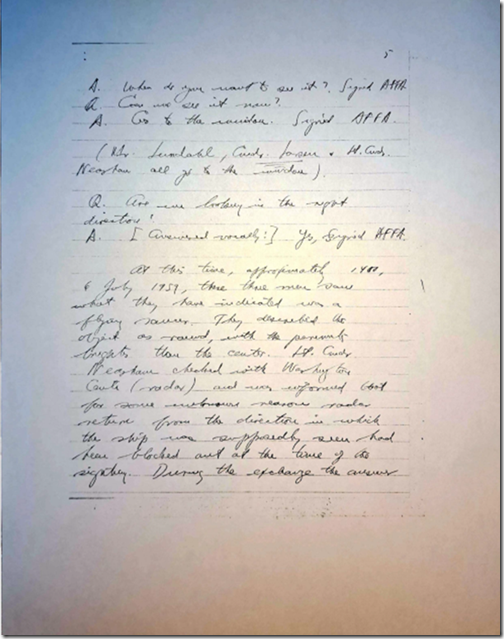 5
A. When do you want to see it? Signed AFFA.
Q. Can we see it now?
A. Go to the window. Signed AFFA.
(Mr. Lundahl, Cmdr. Larsen & Lt. Cmdr.
Neasham all go to the window).
Q. Are we looking in the right
direction?
A. [Answered vocally:] Yes, Signed AFFA.
At this time, approximately 1400,
6 July 1959, these three men saw
what they have indicated was a
flying saucer. They described the
object as round, with the
brighter than the center. Lt. Cmdr.
Neasham checked with Washington
Center (radar) and was informed that
for some unknown reason radar
return from the direction in which
the ship was supposedly seen had
been blocked out at the time of the
sighting. During the exchange the answer